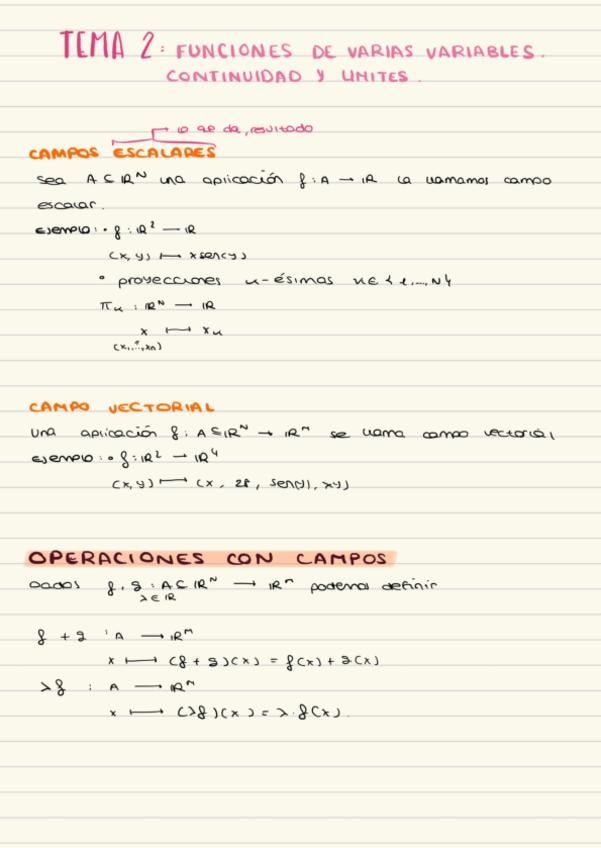 TEMA 2: FUNCIONES DE VARIAS VARIABLES.
CONTINUIDAD Y LIMITES.
lo que da, resultado
CAMPOS ESCALARES
Sea A ⊆ ℝᴺ una aplicación f: A → ℝ la llamamos campo
escalar.
Ejemplo: • f: ℝ² → ℝ
(x, y) ⟼ x sen(y)
• proyecciones k-ésimas k ∈ {1, ..., N}
πₖ : ℝᴺ → ℝ
x ⟼ xₖ
(x₁, ..., xₙ)
CAMPO VECTORIAL
Una aplicación f: A ⊆ ℝᴺ → ℝᴹ se llama campo vectorial
Ejemplo: • f: ℝ² → ℝ⁴
(x, y) ⟼ (x, 28, sen(y), xy)
OPERACIONES CON CAMPOS
Dados f, g : A ⊆ ℝᴺ → ℝᴹ podemos definir
λ ∈ ℝ
f + g : A → ℝᴹ
x ⟼ (f + g)(x) = f(x) + g(x)
λf : A → ℝᴹ
x ⟼ (λf)(x) = λ · f(x).